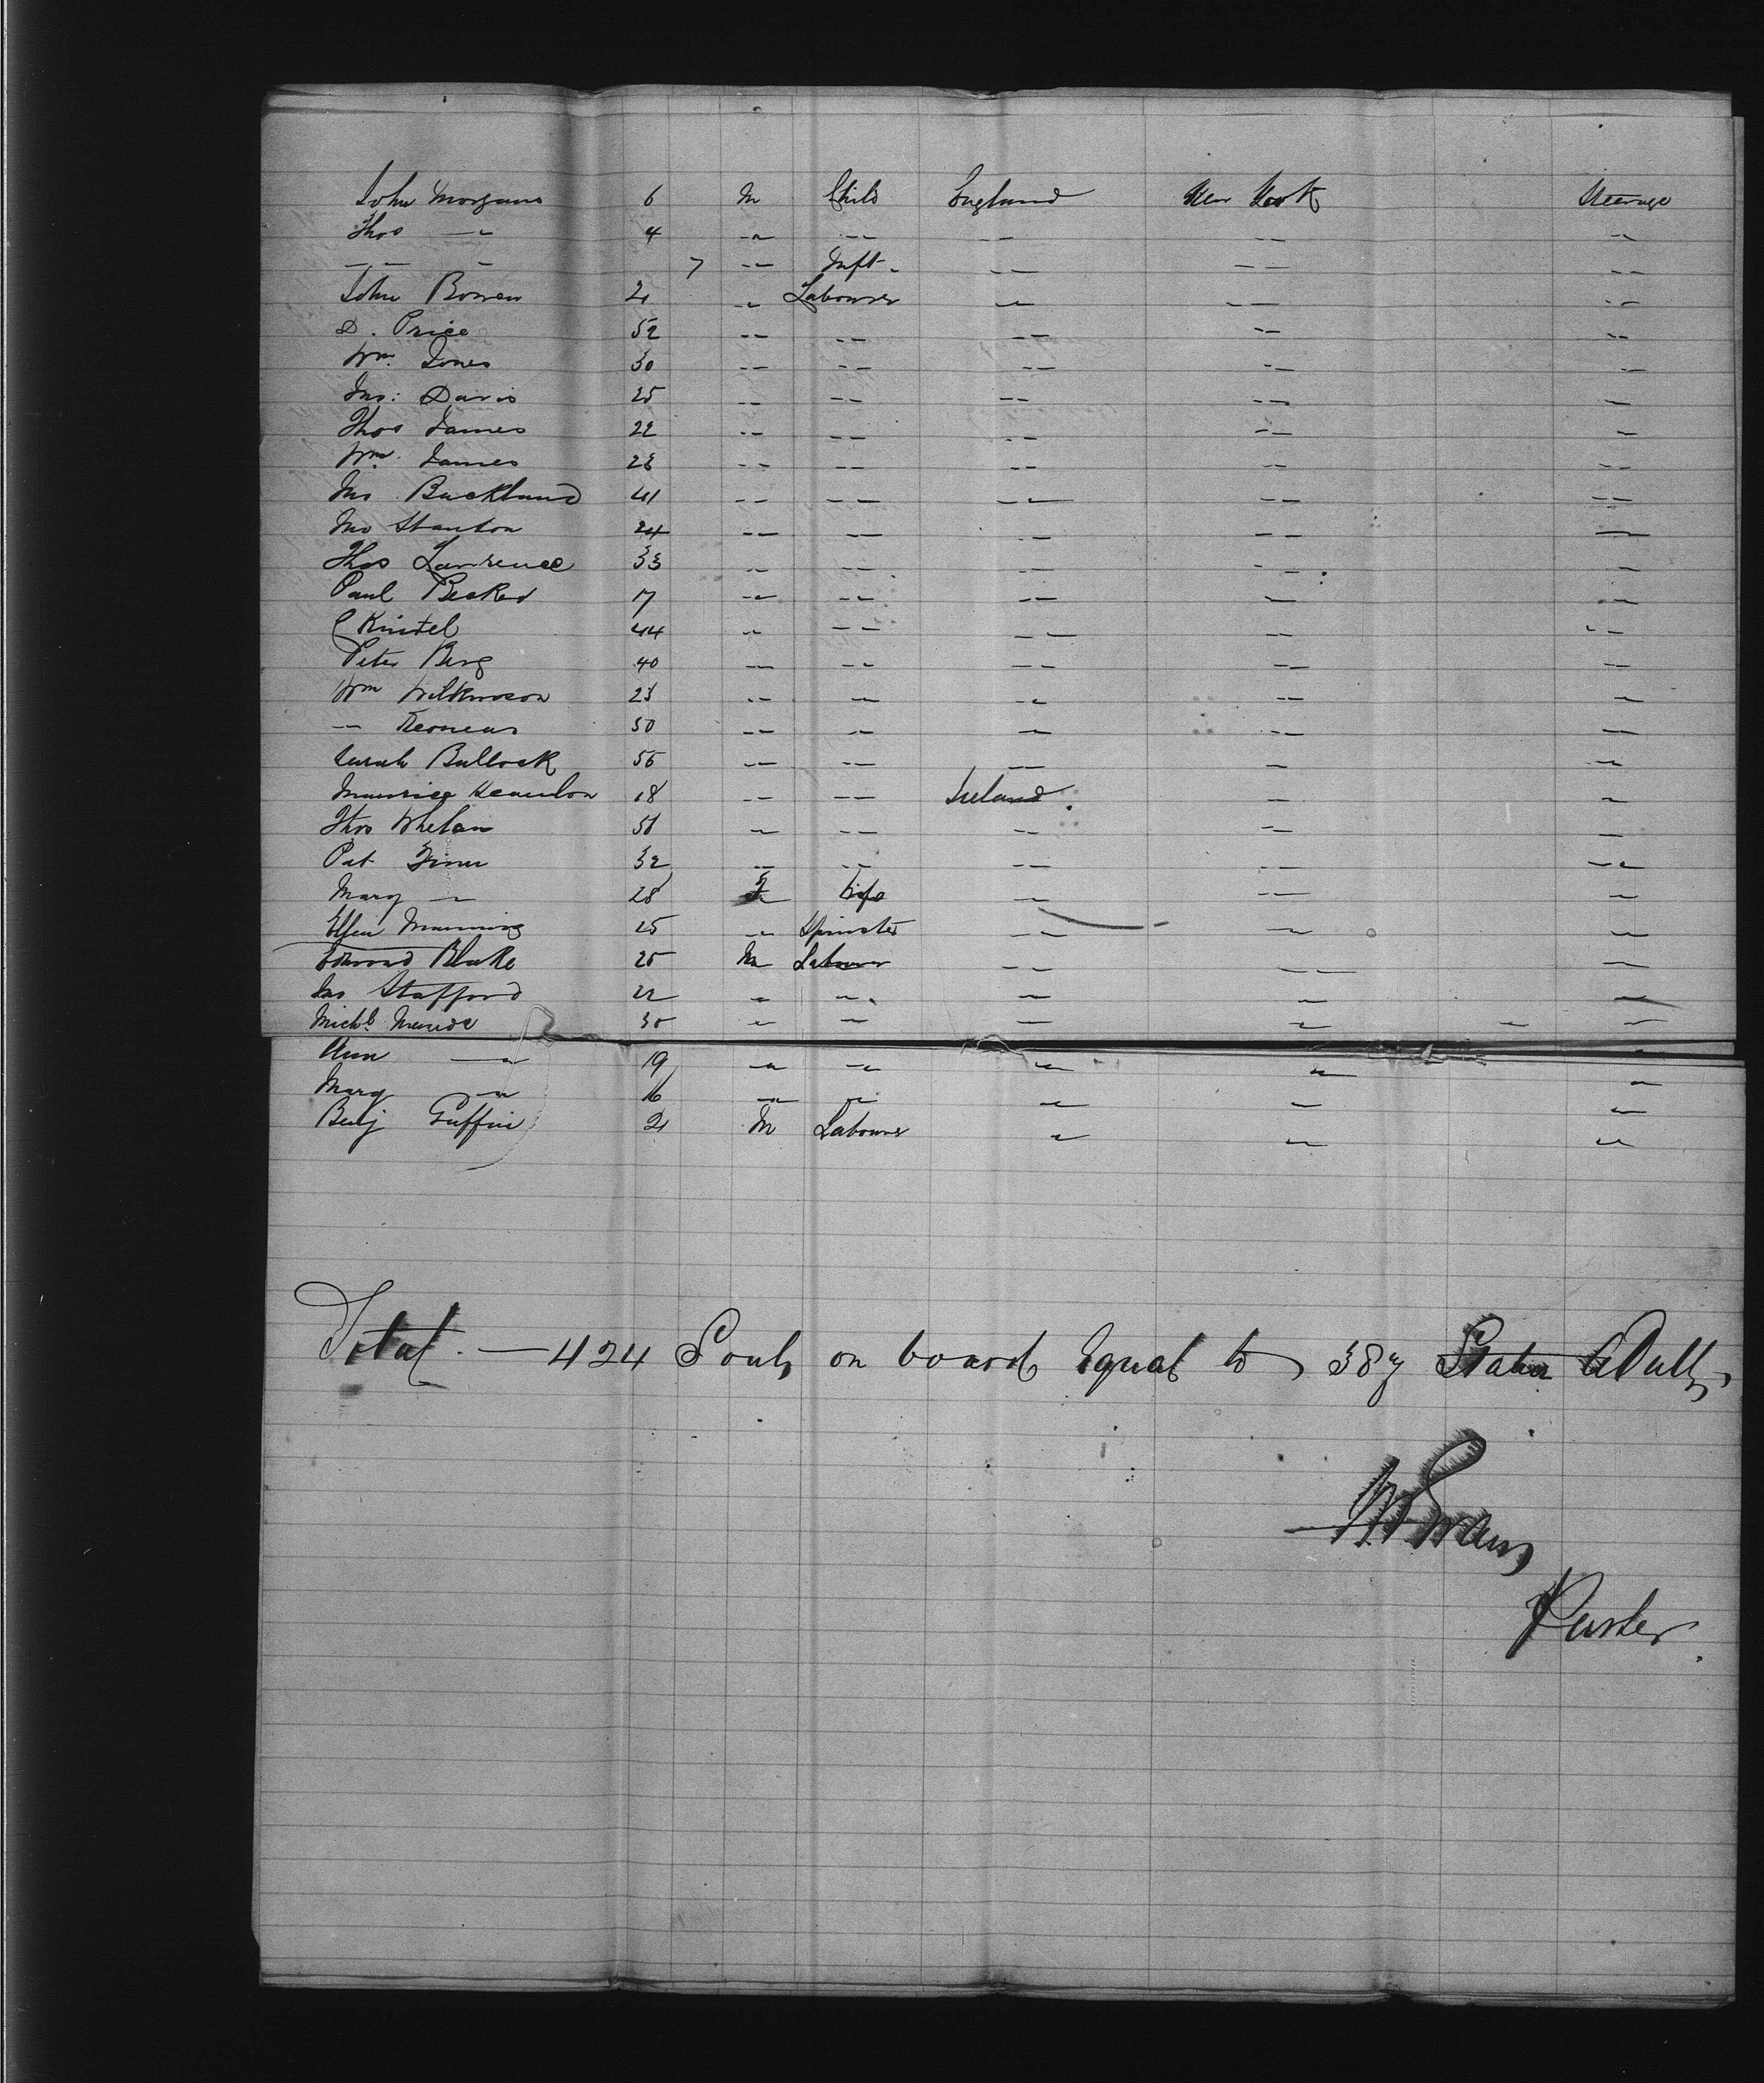 John Morgans 6 M Child England New York Steerage
Thos — " 4 " " " " "
" " " 7 " Inft. " " "
John Bowen 21 " Labourer " " "
D. Price 52 " " " " "
Wm. Jones 30 " " " " "
Jno: Davis 25 " " " " "
Thos James 22 " " " " "
Wm. James 23 " " " " "
Jno Buckland 41 " " " " "
Jno Stanton 24 " " " " "
Thos Lawrence 33 " " " " "
Paul Becker 17 " " " " "
C Kintel 44 " " " " "
Peter Berg 40 " " " " "
Wm Wilkinson 23 " " " " "
" 50 " " " " "
Sarah Bullock 56 " " " " "
Maurice Scanlon 18 " " Ireland " "
Thos Whelan 56 " " " " "
Pat Finn 32 " " " " "
Mary " 28 F Wife " " "
Ellen Manning 25 " Spinster " " "
Edward Blake 25 M Labourer " " "
Jno Stafford 22 " " " " "
Michl. 30 " " " " "
Ann — " 19 " " " " "
Mary " 16 " " " " "
Benj Griffin 21 M Labourer " " "
Total. — 424 Souls on board Equal to 387 Statu Adults
Purser.